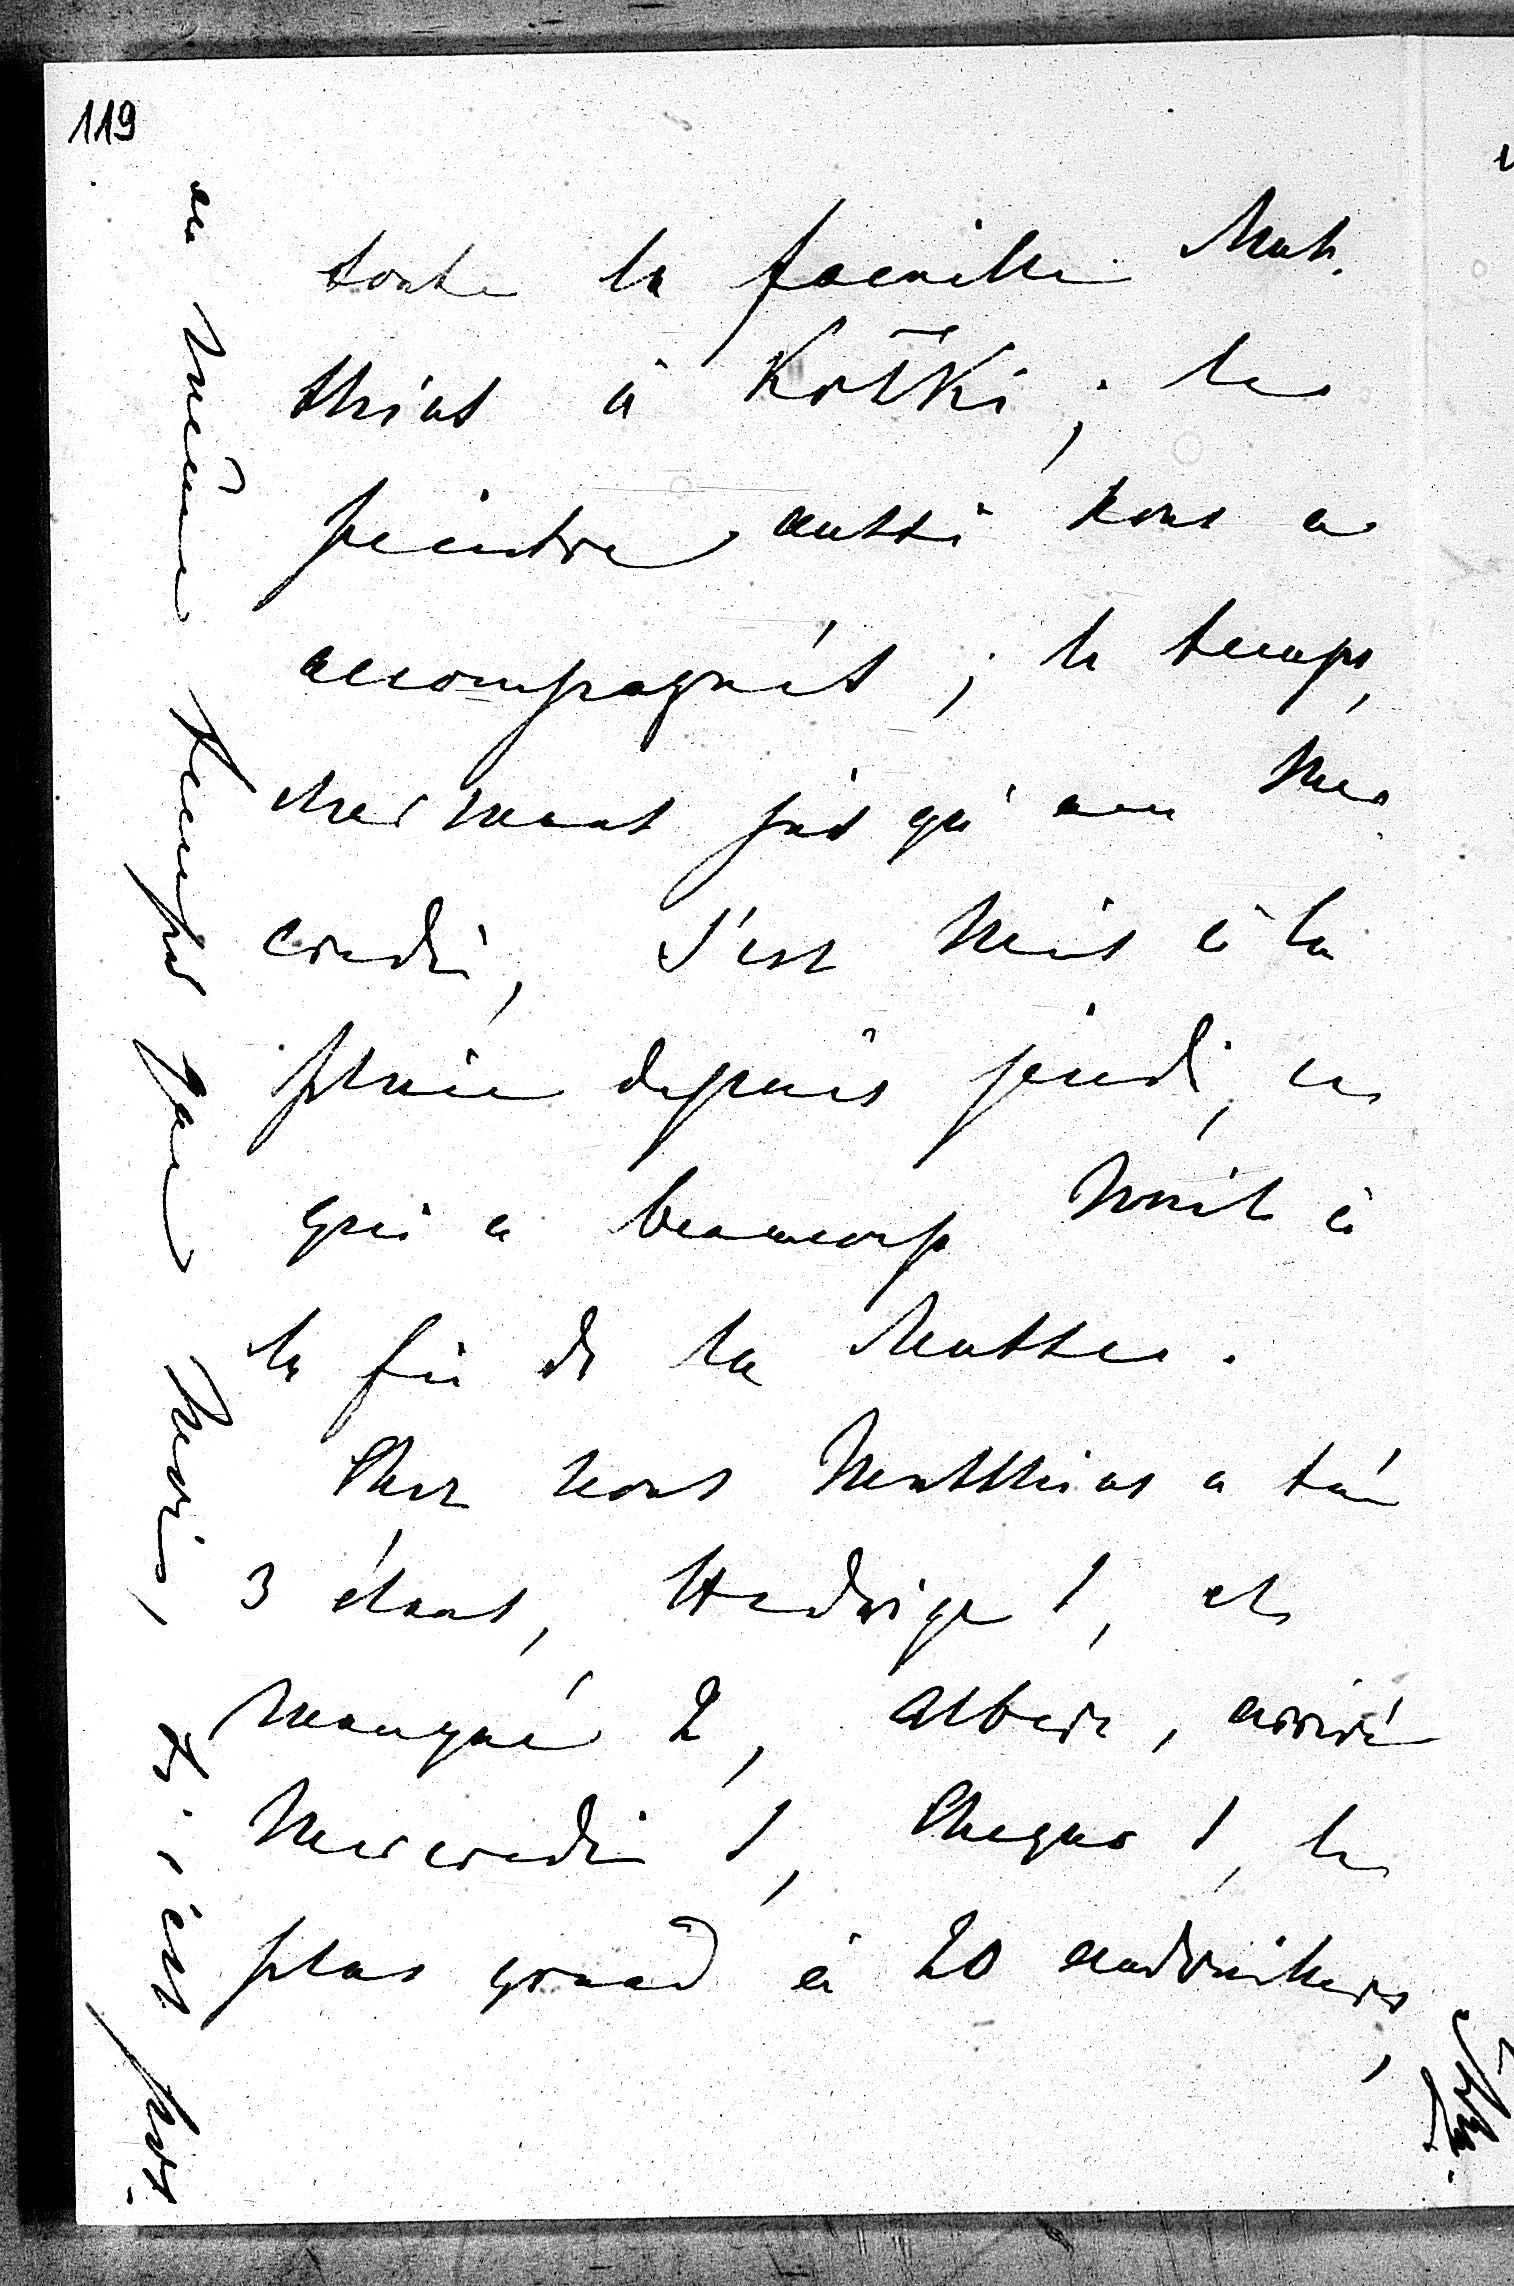 119
toute la famille Mat.
thias à Koški; le
peintre aussi nous a
accompagnés; le temps,
charmant jusqu'au Mer.
credi, s'est mis à la
pluie depuis jeudi, ce
qui a beaucoup nuit à
la fin de la chasse.
Chez nous Matthias a tué
3 élans, Hedwige 1, et
manqué 2, Albert, arrivé
Mercredi 1, 1, le
plus grand à 20 andouillers,
au même temps que